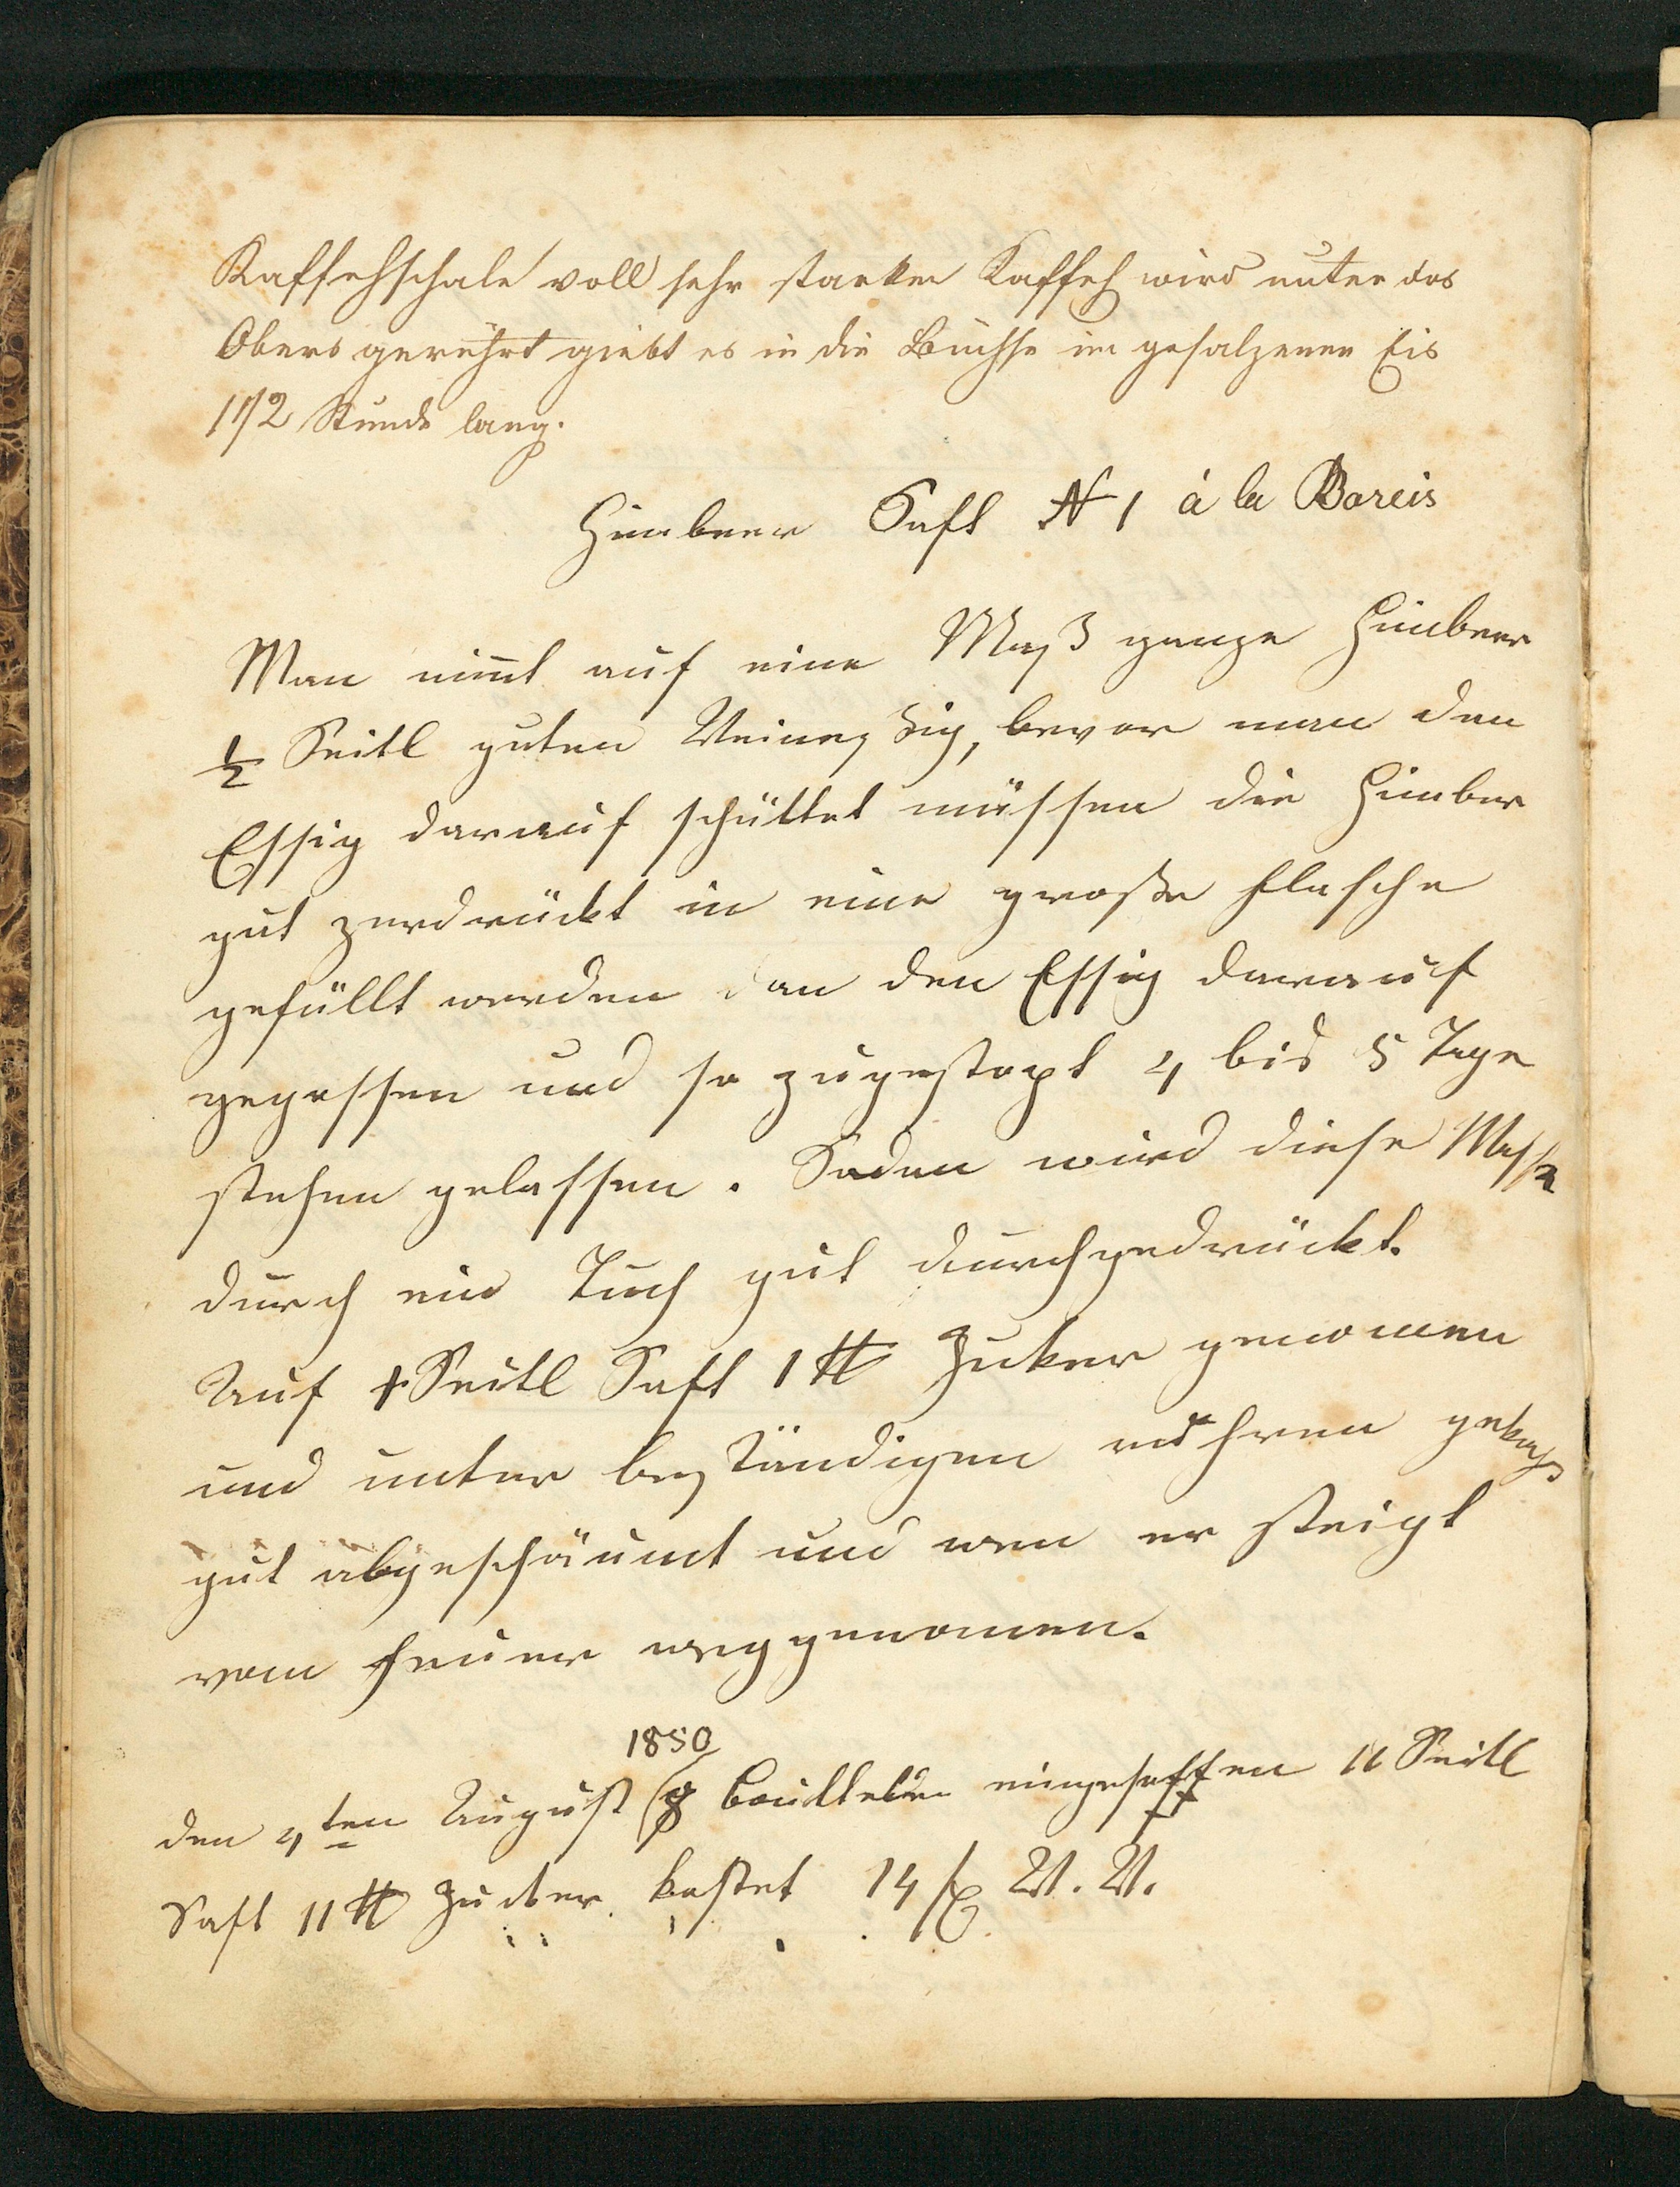 Kaffehschale voll sehr starken Kaffeh wird unter das
Obers gerührt giebt es in die Büchse im gesalzenen Eis
1 1/2 Stunde lang.
Himbeer Saft N 1 à la Boreis
Man nimt auf eine Maß ganze Himbeer
1/2 Seitl guten Weinessig, bevor man den
Essig darauf schüttet müssen die Himber
gut zerdrückt in eine große Flasche
gefüllt werden dan den Essig darauf
gegossen und so zugestopt 4 bis 5 Tage
stehen gelassen. Sodan wird diese Masse
durch ein Tuch gut durchgedrückt.
Auf 1 Seitl Saft 1 ℔ Zuker genomen
und unter beständigen rühren gekocht
gut abgeschäumt und wen er steigt
vom Feuer weggenomen.
1850
den 4ten August 8 Bouttelien eingesotten 11 Seitl
Saft 11 ℔ Zucker kostet 14 f W. W.